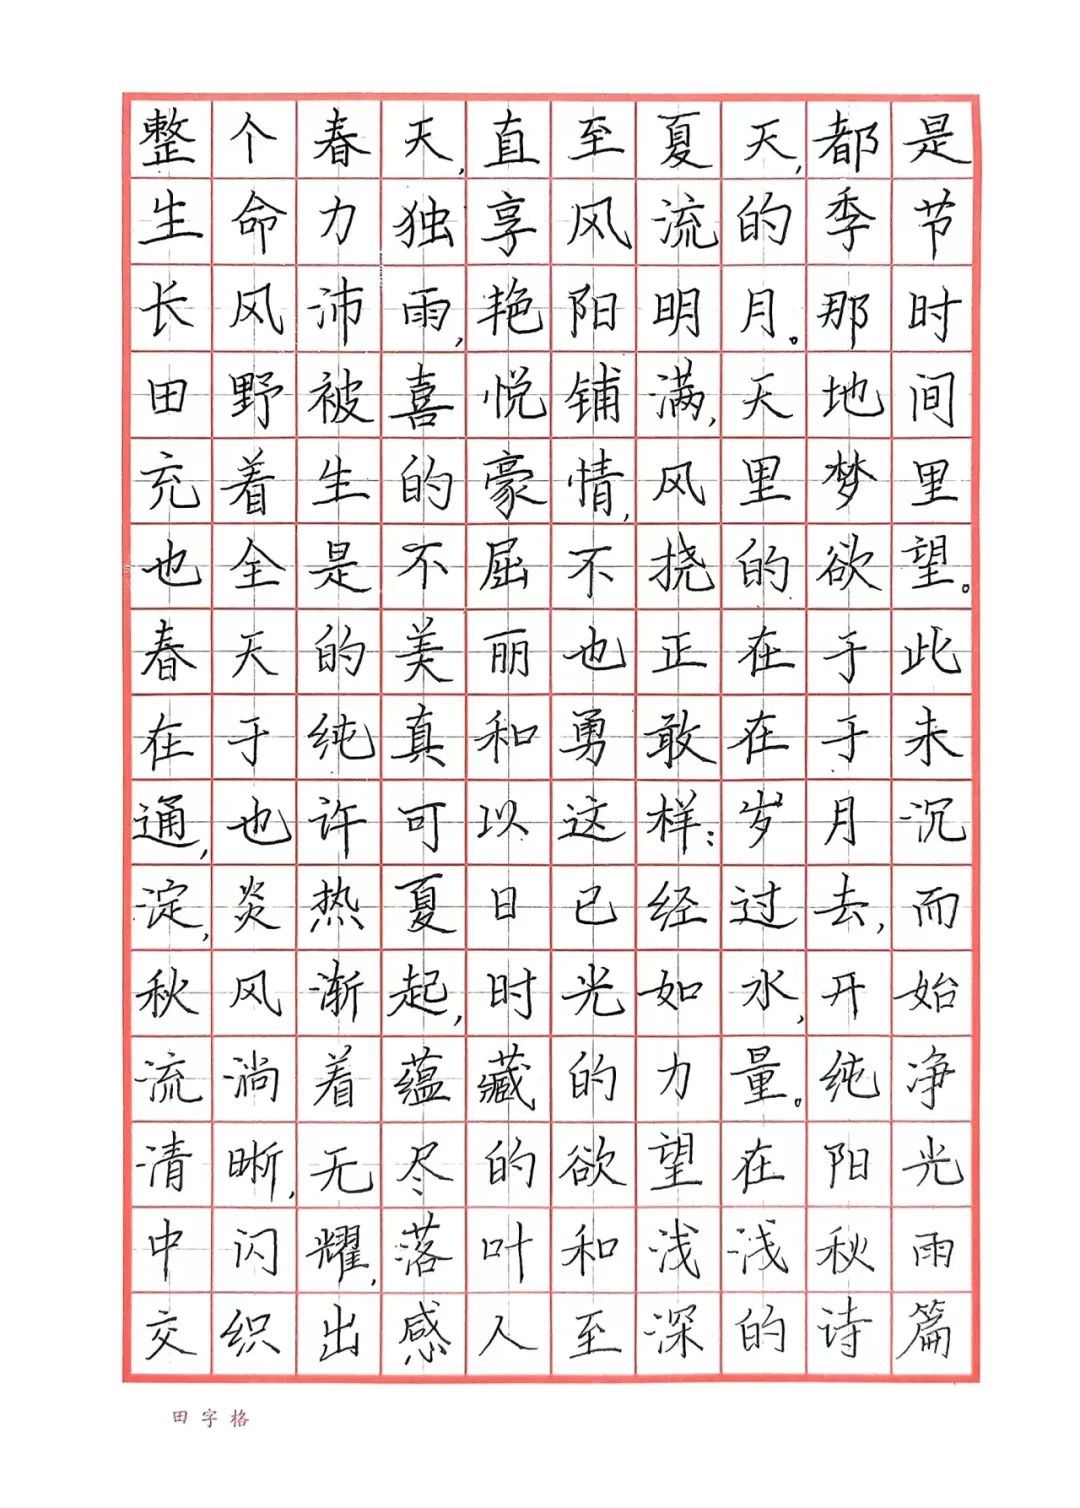 整个春天,直至夏天,都是
生命力独享风流的季节
长风沛雨,艳阳明月。那时
田野被喜悦铺满,天地间
充着生的豪情,风里梦里
也全是不屈不挠的欲望。
春天的美丽也正在于此
在于纯真和勇敢在于未
通,也许可以这样:岁月沉
淀,炎热夏日已经过去,而
秋风渐起,时光如水,开始
流淌着蕴藏的力量。纯净
清晰,无尽的欲望在阳光
中闪耀,落叶和浅浅秋雨
交织出感人至深的诗篇
田字格